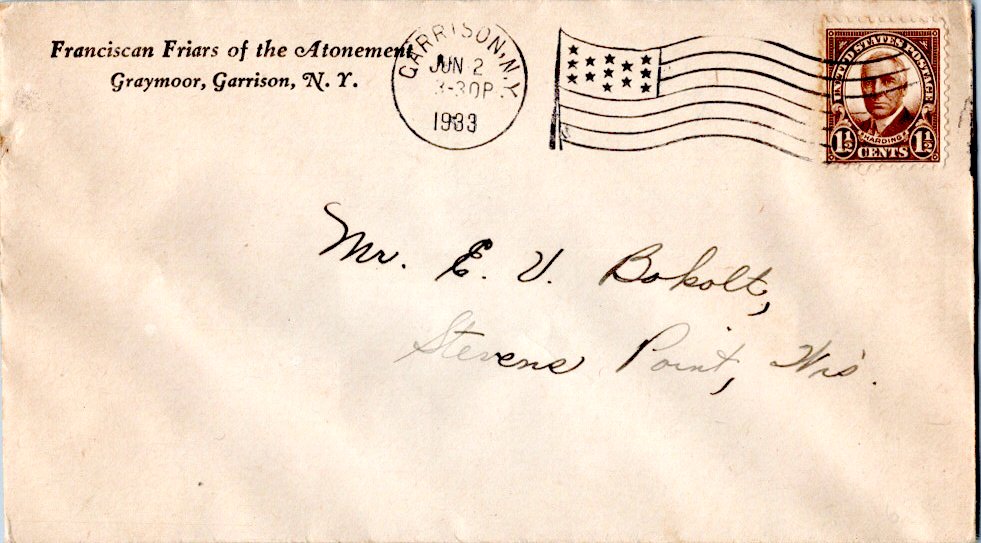 Franciscan Friars of the Atonement
Graymoor, Garrison, N. Y.
GARRISON, N.Y.
JUN 2
3-30P
1933
UNITED STATES POSTAGE
HARDING
1½ CENTS 1½
Mr. E. V. Bokolt,
Stevens Point, Wis.